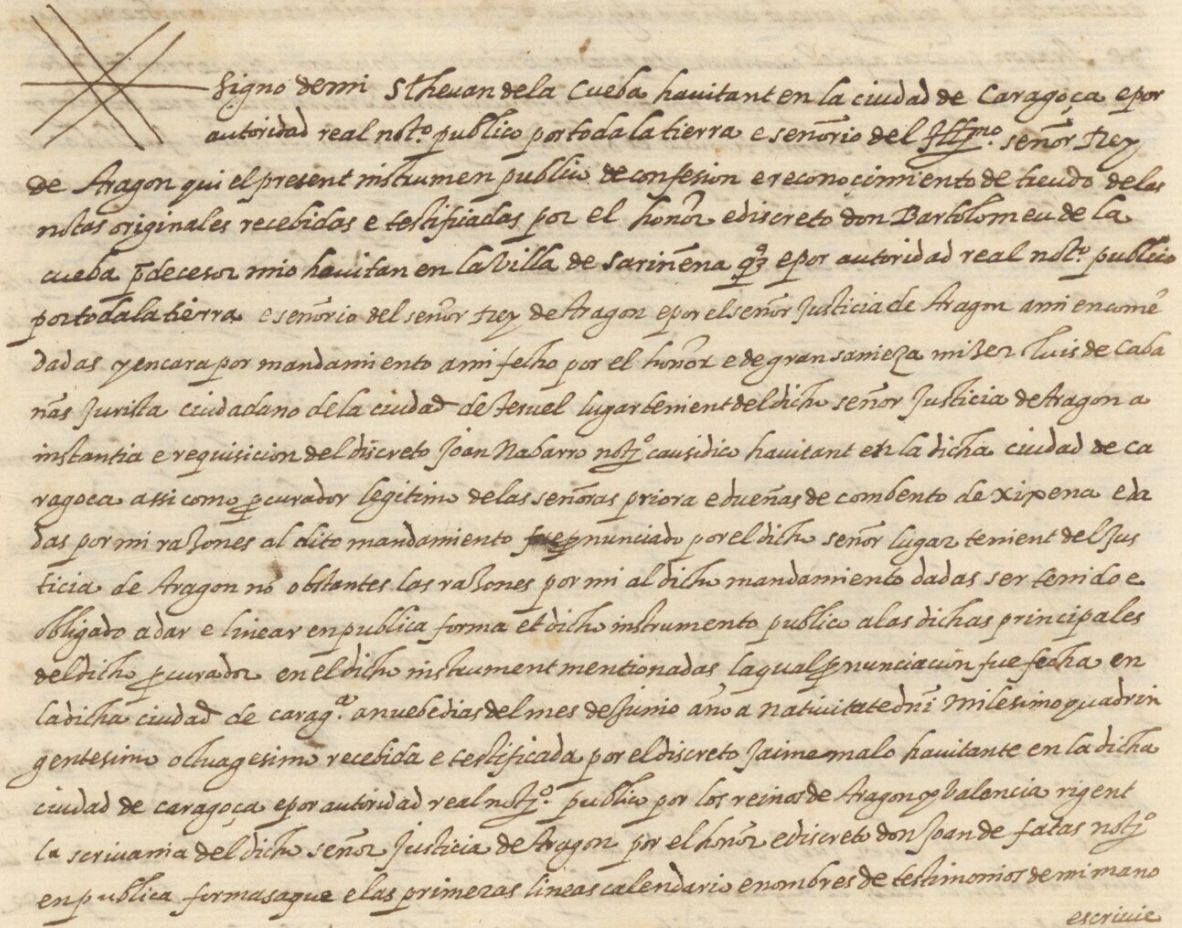 Signo de mi Stheuan de la Cueba hauitant en la ciudad de Caragoça e por
autoridad real notº publico por toda la tierra e señorio del Illmo. señor Rey
de Aragon qui el present instrumen publico de confesion e reconocimiento de treudo de las
notas originales recebidas e testificadas por el honor e discreto don Bartolomeu de la
cueba p̄decesor mio hauitan en la Villa de Sariñena qº e por autoridad real notº publico
por toda la tierra e señorio del señor Rey de Aragon e por el señor Justicia de Aragon a mi encome
dadas y encara por mandamiento a mi fecho por el honor e de gran sanieza miser luis de Caba
ñas Jurista ciudadano de la ciudad de Teruel lugartenient del dicho señor Justicia de Aragon a
instantia e requisicion del discreto Joan Nabarro notº causidico hauitant en la dicha ciudad de ca
ragoca assi como p̱curador legitimo de las señoras priora e dueñas de combento de Xixena e da
das por mi razones al dito mandamiento p̱nunciado por el dicho señor lugar tenient del Jus
ticia de Aragon no obstantes las razones por mi al dicho mandamiento dadas ser tenido e
obligado a dar e linear en publica forma et dicho instrumento publico a las dichas principales
del dicho p̱curador en el dicho instrument mentionadas la qual p̱nunciacion fue fecha en
la dicha ciudad de carag.ª a nuebe dias del mes de Junio año a natiuitate dnī milesimo quadrin
gentesimo octuagesimo recebida e testificada por el discreto Jaime malo hauitante en la dicha
ciudad de caragoça e por autoridad real notº. publico por los reinos de Aragon y balencia rigent
la scriuania del dicho señor Justicia de Aragon por el honor e discreto don Joan de fatas notº
en publica forma saque e las primeras lineas calendario e nombres de testimonios de mi mano
escriuie